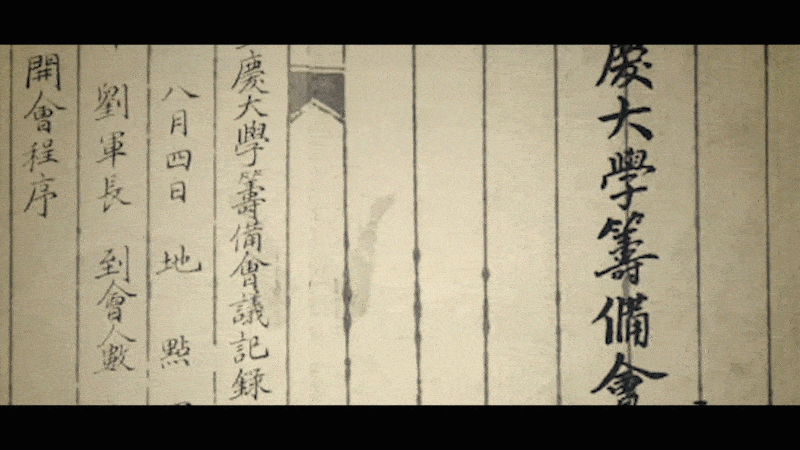 慶大學籌備會
慶大學籌備會議記録
八月四日 地 點
劉軍長 到會人數
開會程序